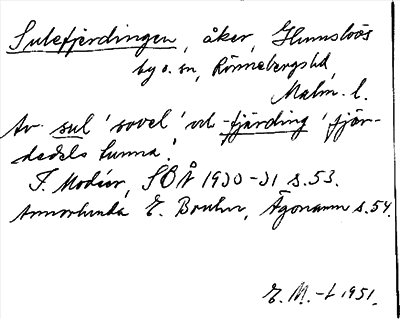 Sulefjerdingen, åker, Glumslövs
by o. sn, Rönnebergs hd
Malm. l.
Av sul 'sovel' och -fjärding 'fjär-
dedels tunna'.
I. Modéer, SOÅ 1930-31 s. 53.
Annorlunda E. Bouhm, Ägonamn s. 54.
E. M-t 1951.